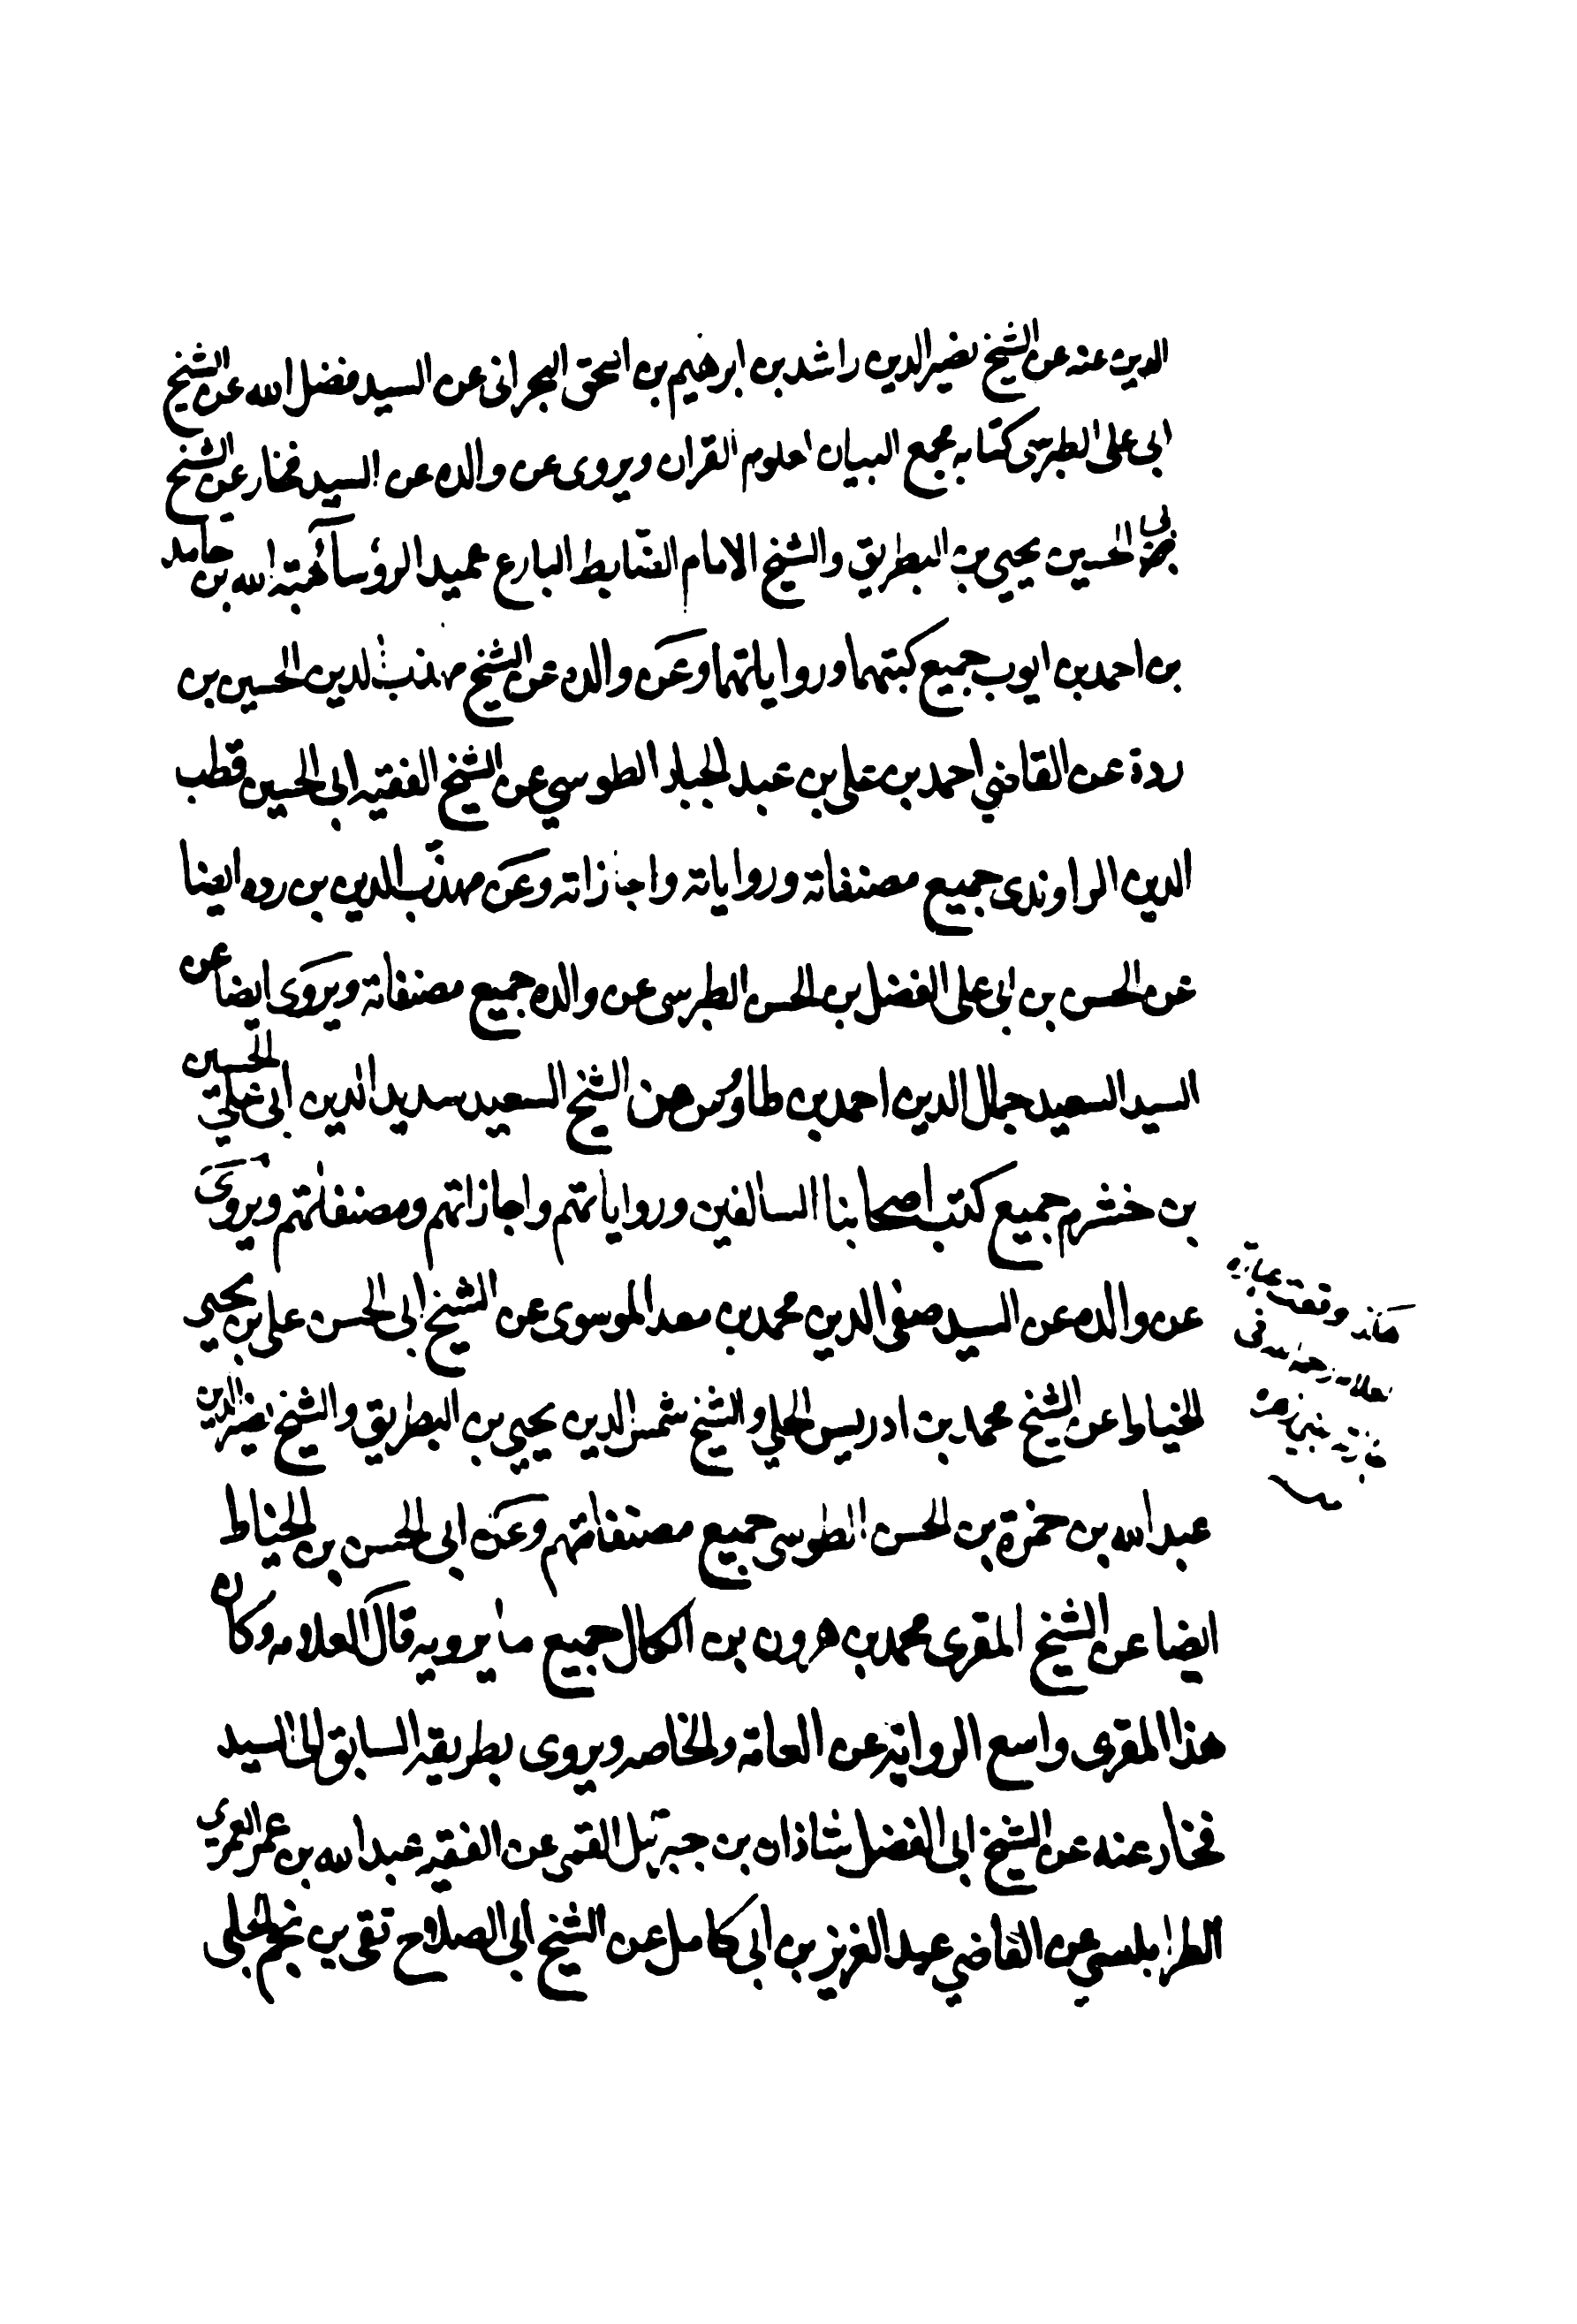 الدين عنه عن الشيخ نصير الدين راشد بن ابرهيم بن اسحق البحرانى عن السيد فضل الله عن الشيخ
ابى على الطبرسى كتابه مجمع البيان لعلوم القران ويروى عن والده عن السيد فخار عن الشيخ
الحسين يحيى بن البطريق والشيخ الامام الضابط البارع عميد الرؤسآ هبة الله بن حامد
بن احمد بن ايوب جميع كتبهما ورواياتهما وعن والده عن الشيخ مهذب الدين الحسين بن
ردة عن القاضي احمد بن على بن عبد الجبار الطوسي عن الشيخ الفقيه ابى الحسين قطب
الدين الراوندى جميع مصنفاته ورواياته واجازاته وعن مهذب الدين بن رده ايضا
عن الحسن بن ابى على الفضل بن الحسن الطبرسى عن والده جميع مصنفاته ويروى ايضا عن
السيد السعيد جمال الدين احمد بن طاوس عن الشيخ السعيد سديد الدين ابى على الحسين
بن خشرم جميع كتب اصحابنا السالفين ورواياتهم واجازاتهم ومصنفاتهم ويروى
عن والده عن السيد صفى الدين محمد بن معد الموسوى عن الشيخ ابى الحسن على بن يحيى
الخياط عن الشيخ محمد بن ادريس الحلي والشيخ شمس الدين يحيى بن البطريق والشيخ نصير الدين
عبد الله بن حمزة بن الحسن الطوسى جميع مصنفاتهم وعن ابى الحسن بن الخياط
ايضا عن الشيخ المقرى محمد بن هرون بن الكال جميع ما يرويه قال العلامه وكان
هذا المقرى واسع الرواية عن العامة والخاصه ويروى بطريقه السابق الى السيد
فخار عنه عن الشيخ ابى الفضل شاذان بن جبرئيل القمى عن الفقيه عبد الله بن عمر العمرى
الطرابلسي عن القاضي عبد العزيز بن ابى كامل عن الشيخ ابى الصلاح تقى بن نجم الحلبى